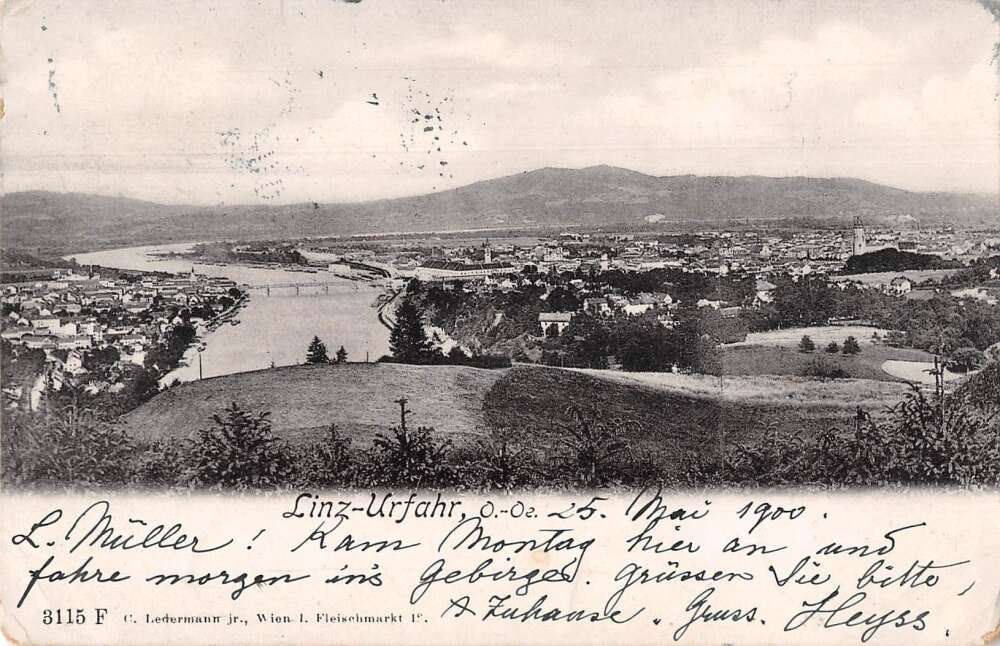 Linz-Urfahr, O.-Oe. 25. Mai 1900.
L. Müller! Kam Montag hier an und
fahre morgen in's Gebirge. Grüssen Sie bitte,
Zuhause. Gruss. Heyss.
3115 F C. Ledermann jr., Wien I. Fleischmarkt